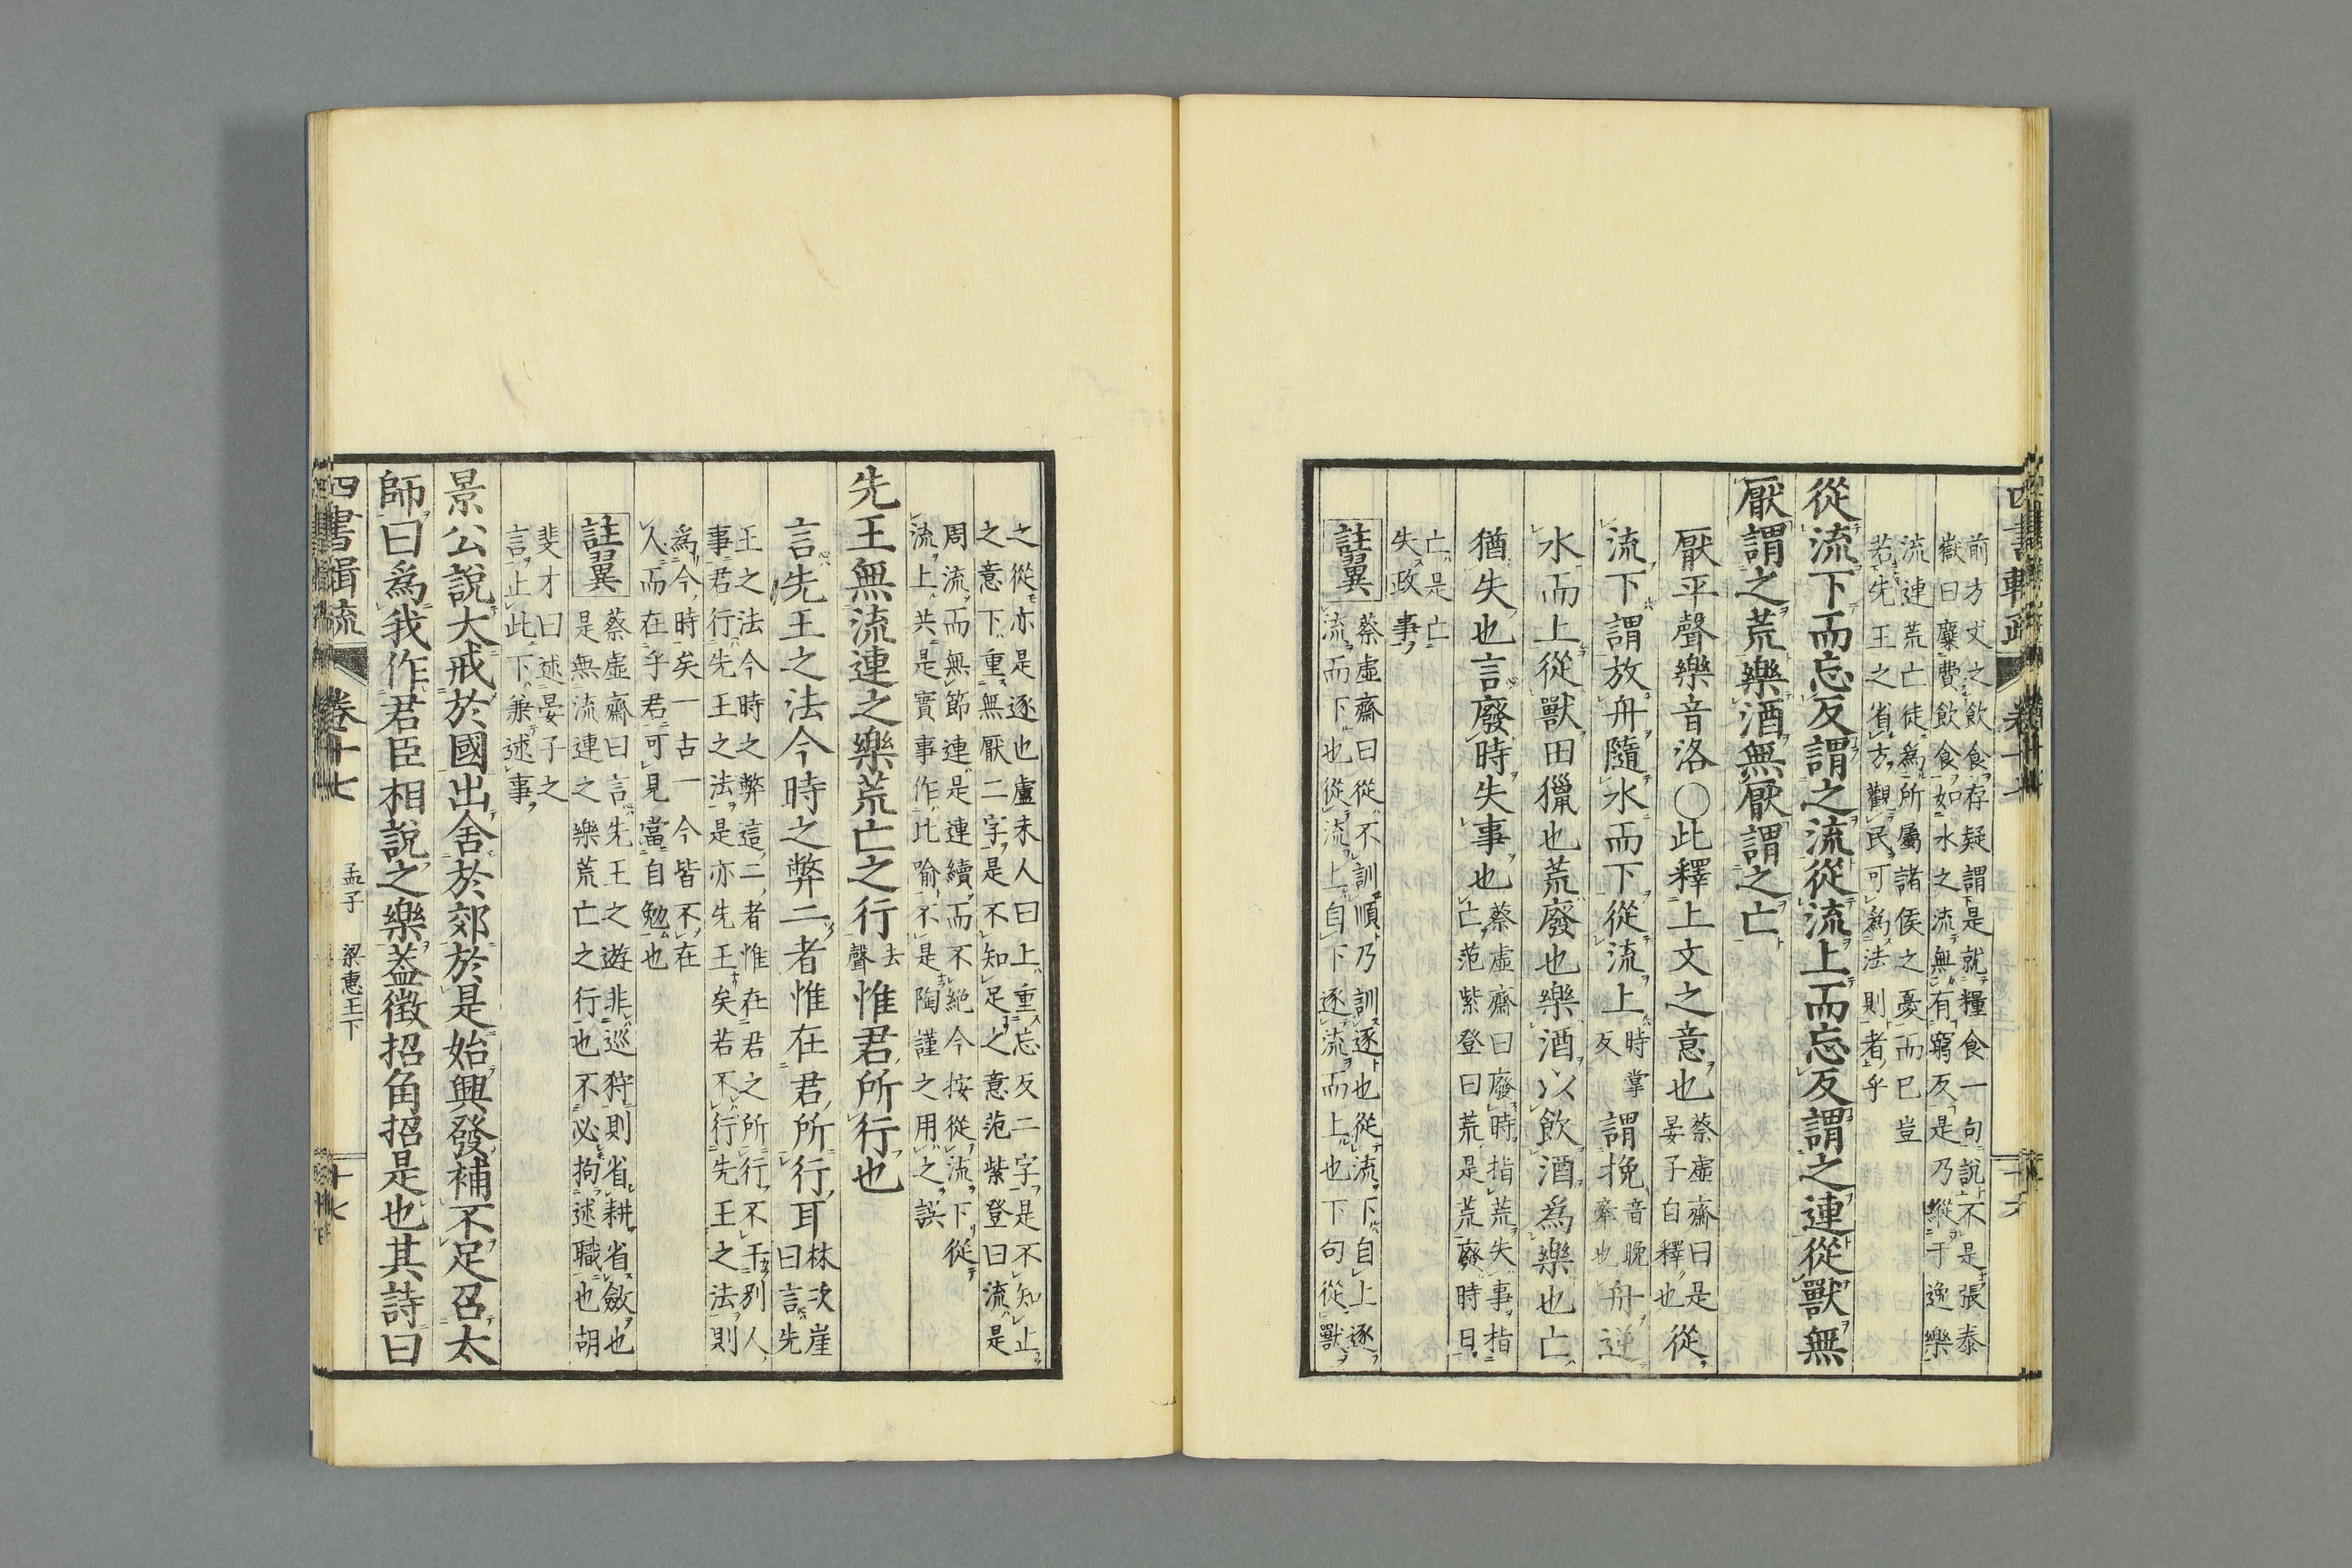 前方丈之飲食存疑謂是就糧食一句說不是張泰
嶽曰糜費飲食如水之流無有窮反是乃縱于逸樂
流連荒亡徒為所屬諸侯之憂而已豈
若先王之省方觀民可為法則者乎
從流下而忘反謂之流從流上而忘反謂之連從獸無
厭謂之荒樂酒無厭謂之亡
厭平聲樂音洛〇此釋上文之意也蔡虛齋曰是晏子自釋也從
流下謂放舟隨水而下從流上時掌反謂挽音晚牽也舟逆
水而上從獸田獵也荒廢也樂酒以飲酒為樂也亡
猶失也言廢時失事也蔡虛齋曰廢時指荒失事指亡范紫登曰荒是荒廢時日
亡是亡
失政事
註翼 蔡虛齋曰從不訓順乃訓逐也從流下自上逐
流而下也從流上自下逐流而上也下句從獸
之從亦是逐也盧未人曰上重忘反二字是不知止
之意下重無厭二字是不知足之意范紫登曰流是
周流而無節連是連續而不絕今按從流下從
流上共是實事作比喻不是陶謹之用之誤
先王無流連之樂荒亡之行去聲惟君所行也
言先王之法今時之弊二者惟在君所行耳林次崖曰言先
王之法今時之弊這二者惟在君之所行不干別人
事君行先王之法是亦先王矣若不行先王之法則
為今時矣一古一今皆不在
人而在乎君可見當自勉也
註翼 蔡虛齋曰言先王之遊非巡狩則省耕省斂也
是無流連之樂荒亡之行也不必拘述職也胡
斐才曰述晏子之
言止此下兼述事
景公說大戒於國出舍於郊於是始興發補不足召太
師曰為我作君臣相說之樂蓋徵招角招是也其詩曰
四書輯疏 卷十七 孟子 梁惠王下 十七